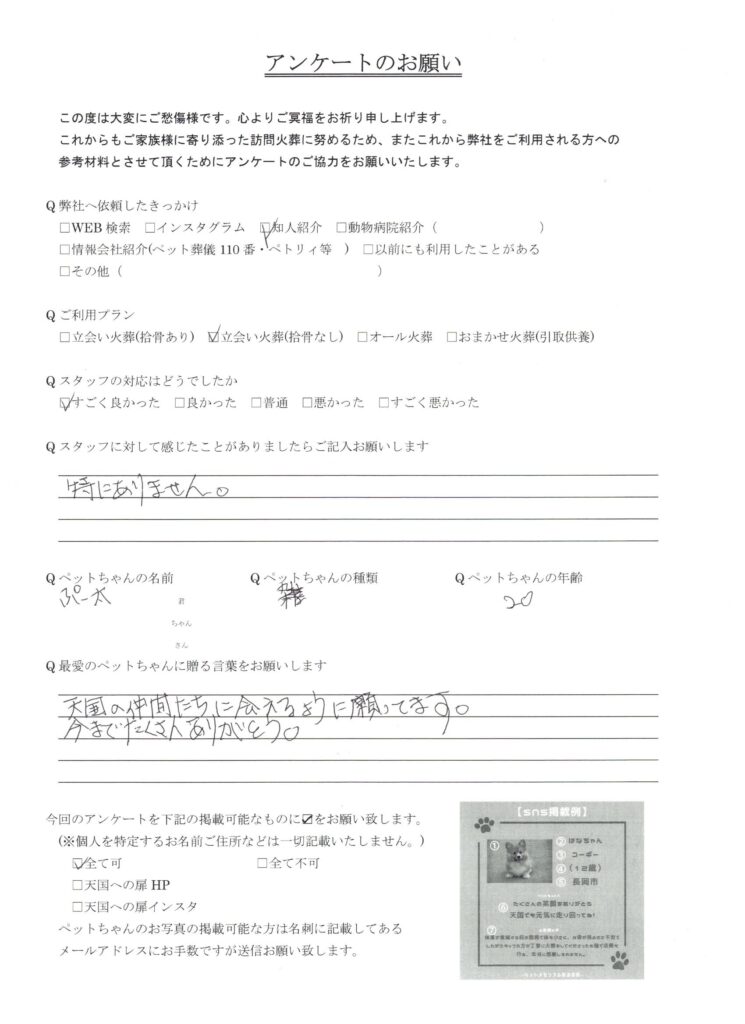 アンケートのお願い
この度は大変にご愁傷様です。心よりご冥福をお祈り申し上げます。
これからもご家族様に寄り添った訪問火葬に努めるため、またこれから弊社をご利用される方への
参考材料とさせて頂くためにアンケートのご協力をお願いいたします。
Q 弊社へ依頼したきっかけ
□WEB 検索 □インスタグラム ☑知人紹介 □動物病院紹介（ ）
□情報会社紹介(ペット葬儀 110 番・ペトリィ等 ) □以前にも利用したことがある
□その他（ ）
Q ご利用プラン
□立会い火葬(拾骨あり) ☑立会い火葬(拾骨なし) □オール火葬 □おまかせ火葬(引取供養)
Q スタッフの対応はどうでしたか
☑すごく良かった □良かった □普通 □悪かった □すごく悪かった
Q スタッフに対して感じたことがありましたらご記入お願いします
特にありません。
Q ペットちゃんの名前 Q ペットちゃんの種類 Q ペットちゃんの年齢
ぷー太 君 雑 20
ちゃん
さん
Q 最愛のペットちゃんに贈る言葉をお願いします
天国の仲間たちに会えるように願ってます。
今までたくさんありがとう。
今回のアンケートを下記の掲載可能なものに☑をお願い致します。
(※個人を特定するお名前ご住所などは一切記載いたしません。)
☑全て可 □全て不可
□天国への扉 HP
□天国への扉インスタ
ペットちゃんのお写真の掲載可能な方は名刺に記載してある
メールアドレスにお手数ですが送信お願い致します。
【sns掲載例】
① ② はなちゃん
③ コーギー
④ (12歳)
⑤ 長岡市
⑥ たくさんの笑顔をありがとう
天国でも元気に走り回ってね!
⑦